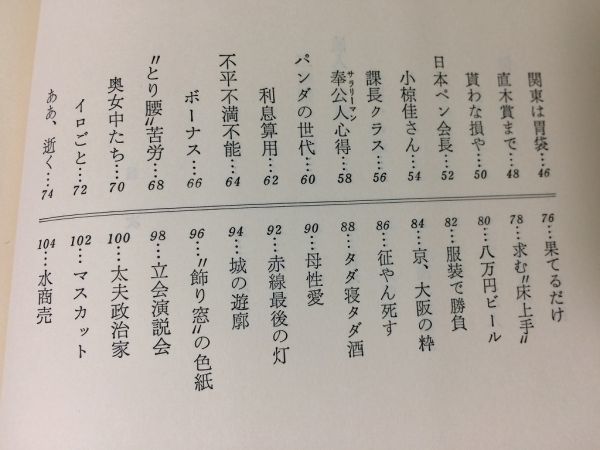 関東は胃袋…46
直木賞まで…48
貰わな損や…50
日本ペン会長…52
小椋佳さん…54
課長クラス…56
奉公人心得…58
サラリーマン
パンダの世代…60
利息算用…62
不平不満不能…64
ボーナス…66
〝とり腰〟苦労…68
奥女中たち…70
イロごと…72
ああ、逝く…74
76…果てるだけ
78…求む〝床上手〟
80…八万円ビール
82…服装で勝負
84…京、大阪の粋
86…征やん死す
88…タダ寝タダ酒
90…母性愛
92…赤線最後の灯
94…城の遊廓
96…〝飾り窓〟の色紙
98…立会演説会
100…太夫政治家
102…マスカット
104…水商売